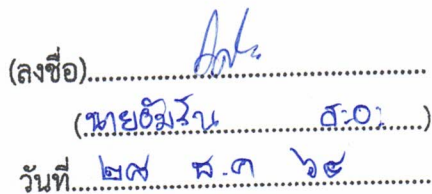 (ลงชื่อ)
(นายอัมรัน สะอะ)
วันที่ ๒๘ ธ.ค ๖๕